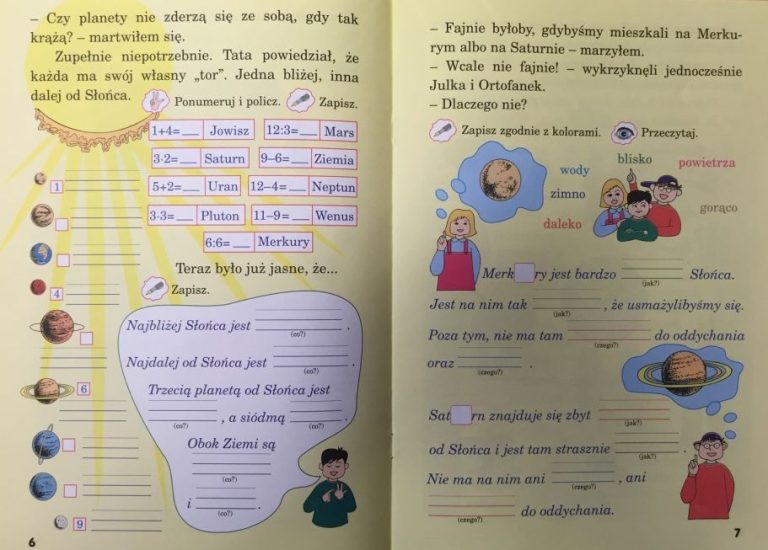 – Czy planety nie zderzą się ze sobą, gdy tak
krążą? – martwiłem się.
Zupełnie niepotrzebnie. Tata powiedział, że
każda ma swój własny „tor”. Jedna bliżej, inna
dalej od Słońca.
Ponumeruj i policz. Zapisz.
1+4=___ Jowisz 12:3=___ Mars
3·2=___ Saturn 9–6=___ Ziemia
5+2=___ Uran 12–4=___ Neptun
3·3=___ Pluton 11–9=___ Wenus
6:6=___ Merkury
1
4
6
9
Teraz było już jasne, że...
Zapisz.
Najbliżej Słońca jest ___ .
(co?)
Najdalej od Słońca jest ___ .
(co?)
Trzecią planetą od Słońca jest
___ , a siódmą ___ .
(co?) (co?)
Obok Ziemi są
___
(co?)
i ___ .
(co?)
6
– Fajnie byłoby, gdybyśmy mieszkali na Merku-
rym albo na Saturnie – marzyłem.
– Wcale nie fajnie! – wykrzyknęli jednocześnie
Julka i Ortofanek.
– Dlaczego nie?
Zapisz zgodnie z kolorami. Przeczytaj.
wody blisko powietrza
zimno
gorąco
daleko
Merk ry jest bardzo ___ Słońca.
(jak?)
Jest na nim tak ___ , że usmażylibyśmy się.
(jak?)
Poza tym, nie ma tam ___ do oddychania
(czego?)
oraz ___ .
(czego?)
Sat rn znajduje się zbyt ___
(jak?)
od Słońca i jest tam strasznie ___ .
(jak?)
Nie ma na nim ani ___ , ani
(czego?)
___ do oddychania.
(czego?)
7